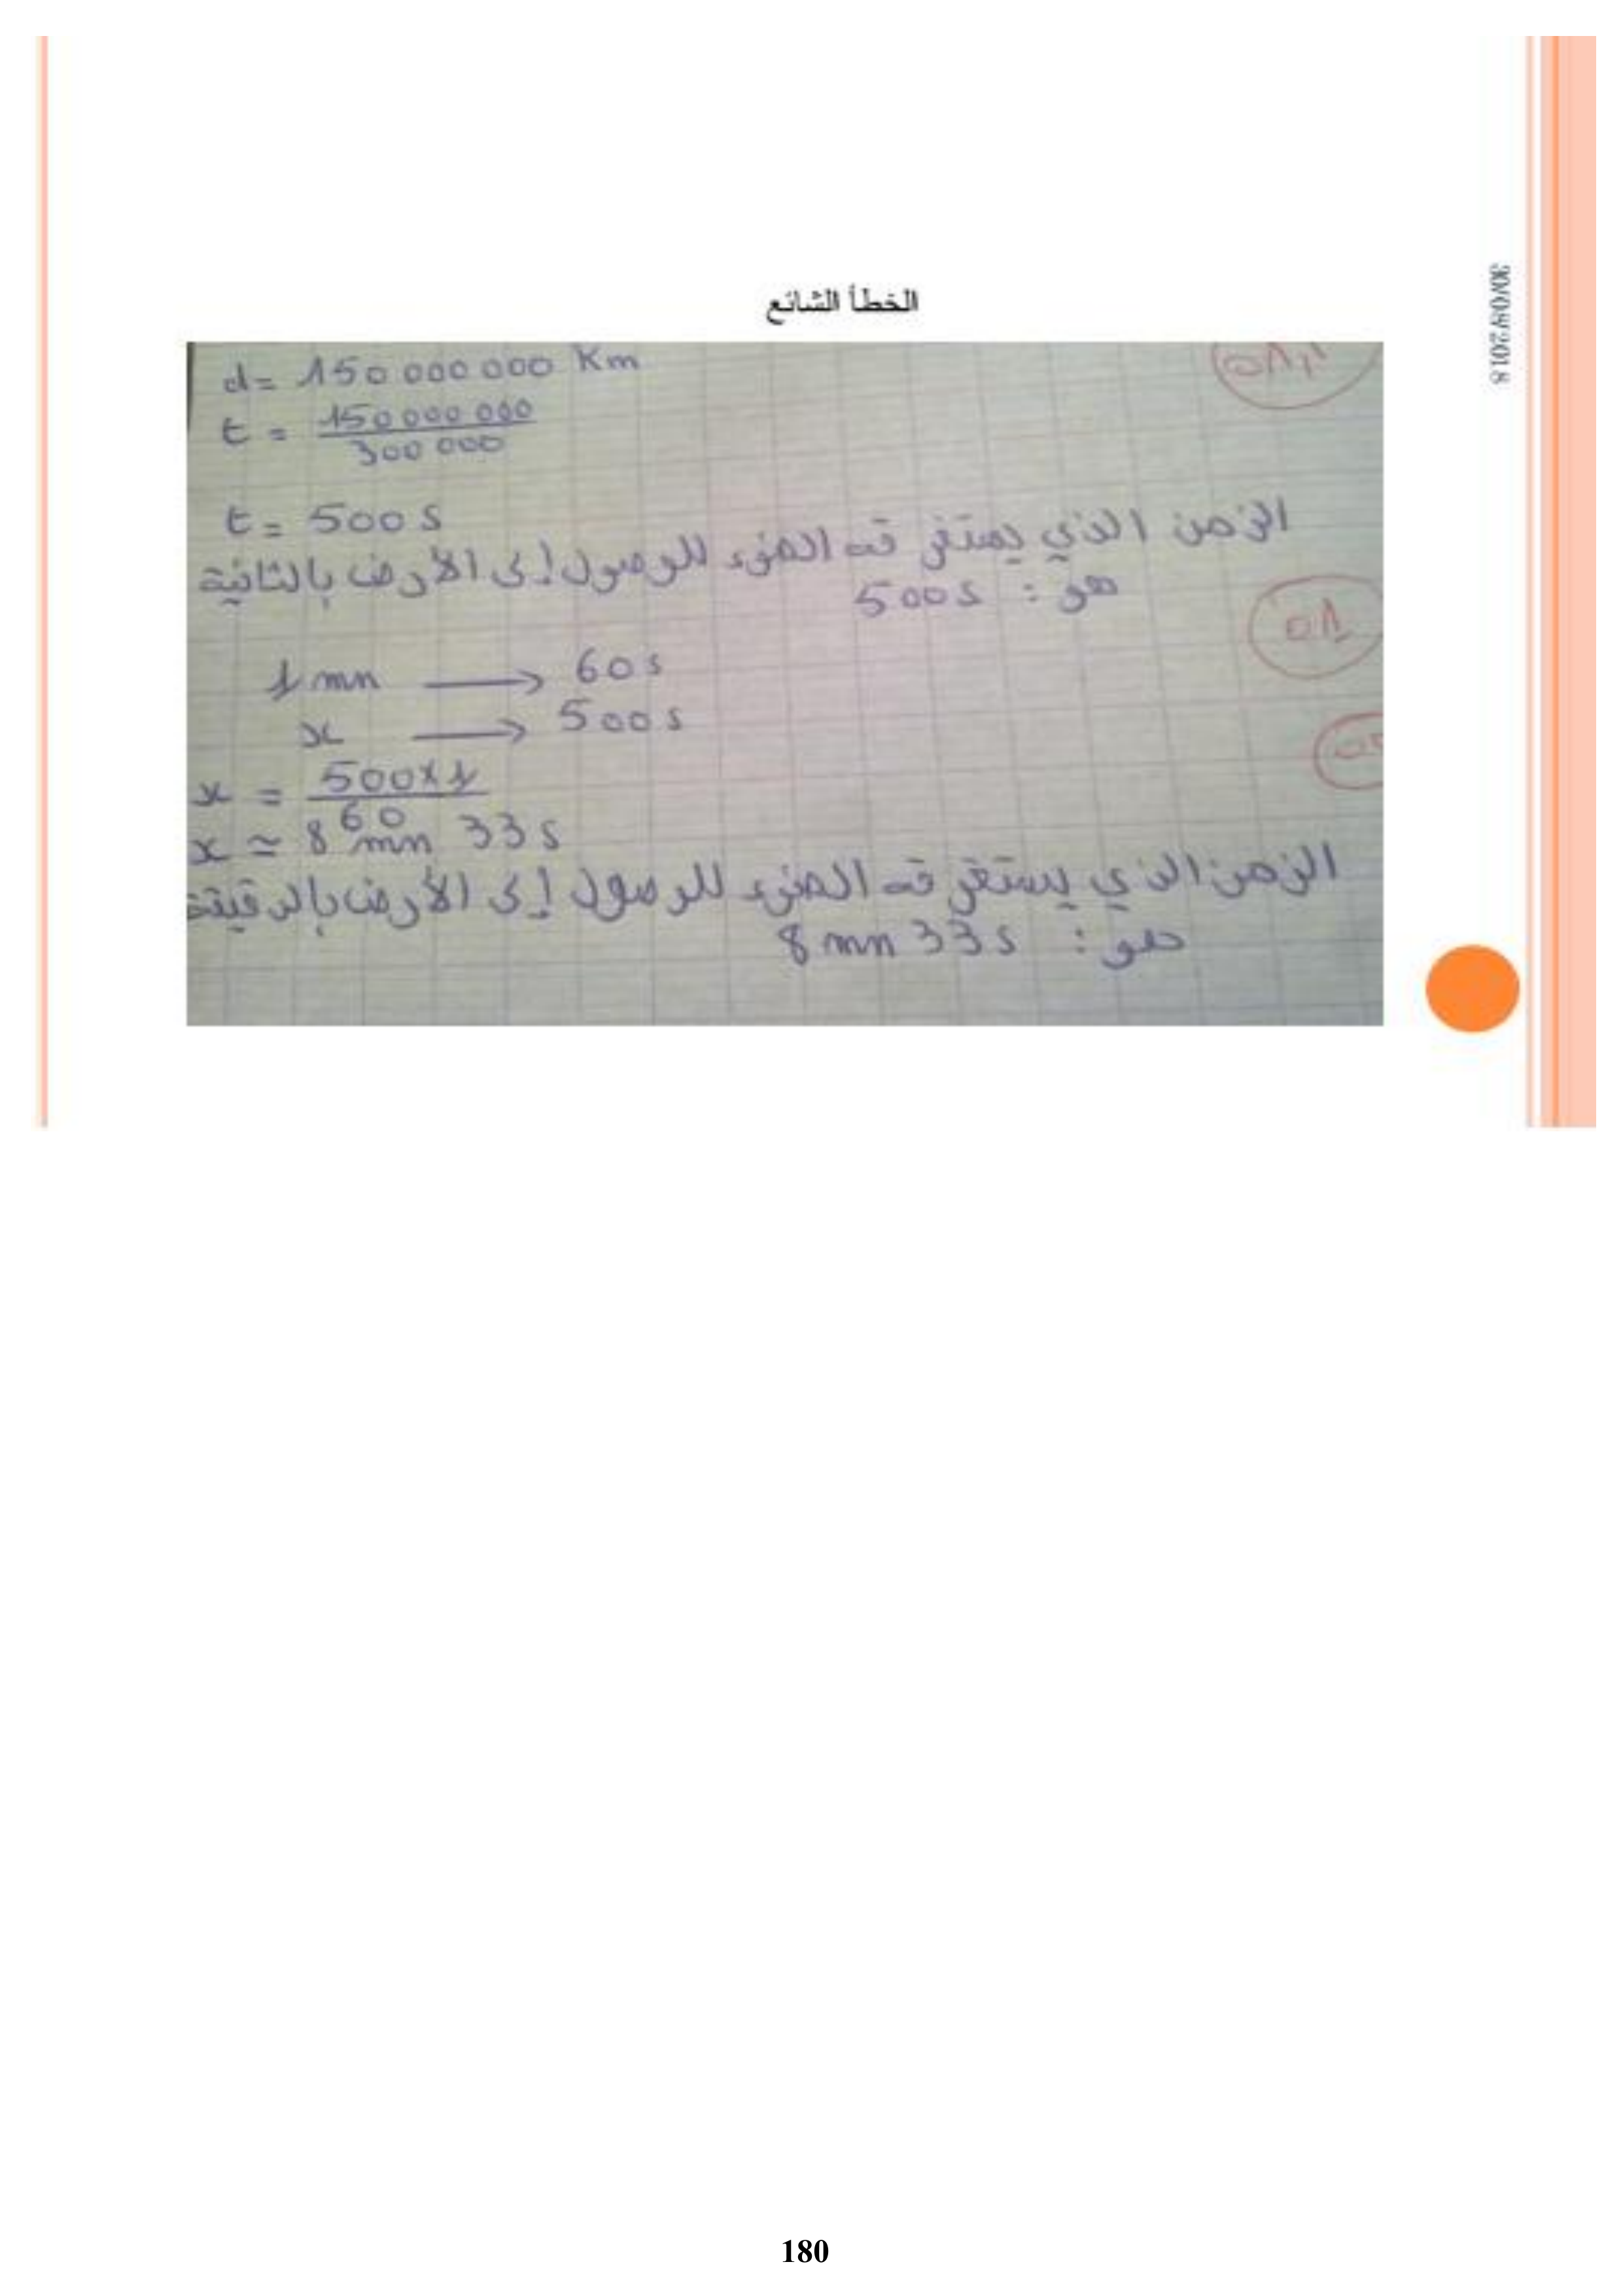 30/08/2018
الخطأ الشائع
d = 150 000 000 Km
t = 150 000 000 / 300 000
t = 500 s
الزمن الذي يستغرقه الضوء للوصول إلى الأرض بالثانية
هو : 500 s
01
1 mn → 60 s
x → 500 s
x = 500×1 / 60
x ≃ 8 mn 33 s
الزمن الذي يستغرقه الضوء للوصول إلى الأرض بالدقيقة
هو : 8 mn 33 s
180